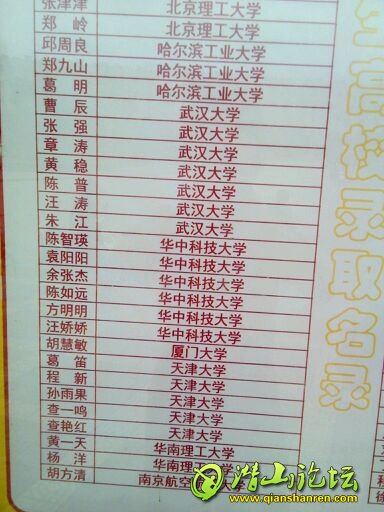 张津津 北京理工大学
郑岭 北京理工大学
邱周良 哈尔滨工业大学
郑九山 哈尔滨工业大学
葛明 哈尔滨工业大学
曹辰 武汉大学
张强 武汉大学
章涛 武汉大学
黄稳 武汉大学
陈普 武汉大学
汪涛 武汉大学
朱江 武汉大学
陈智瑛 华中科技大学
袁阳阳 华中科技大学
余张杰 华中科技大学
陈如远 华中科技大学
方明明 华中科技大学
汪娇娇 华中科技大学
胡慧敏 厦门大学
葛笛 天津大学
程新 天津大学
孙雨果 天津大学
查一鸣 天津大学
查艳红 天津大学
黄一天 华南理工大学
杨洋 华南理工大学
胡方清 南京航空
高校录取名录
潜山论坛
www.qianshanren.com